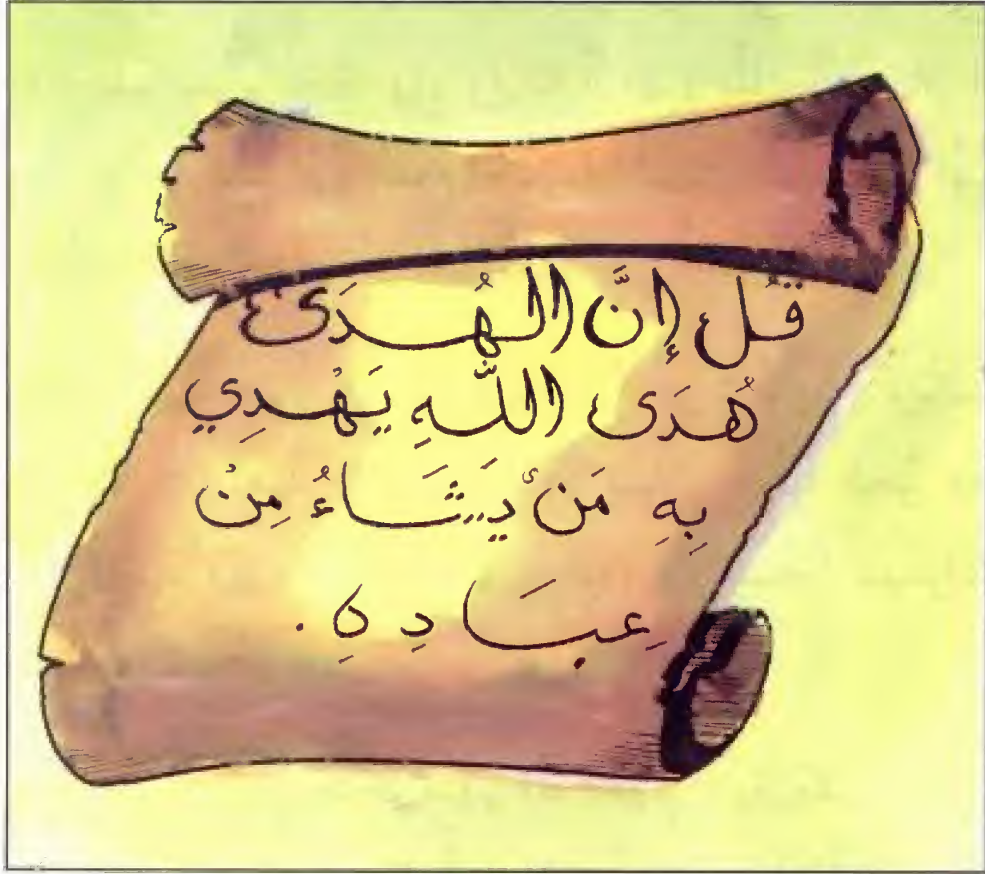 قُل إِنَّ الهُدَى
هُدَى اللَّهِ يَهْدِي
بِهِ مَنْ يَشَاءُ مِنْ
عِبَادِهِ.